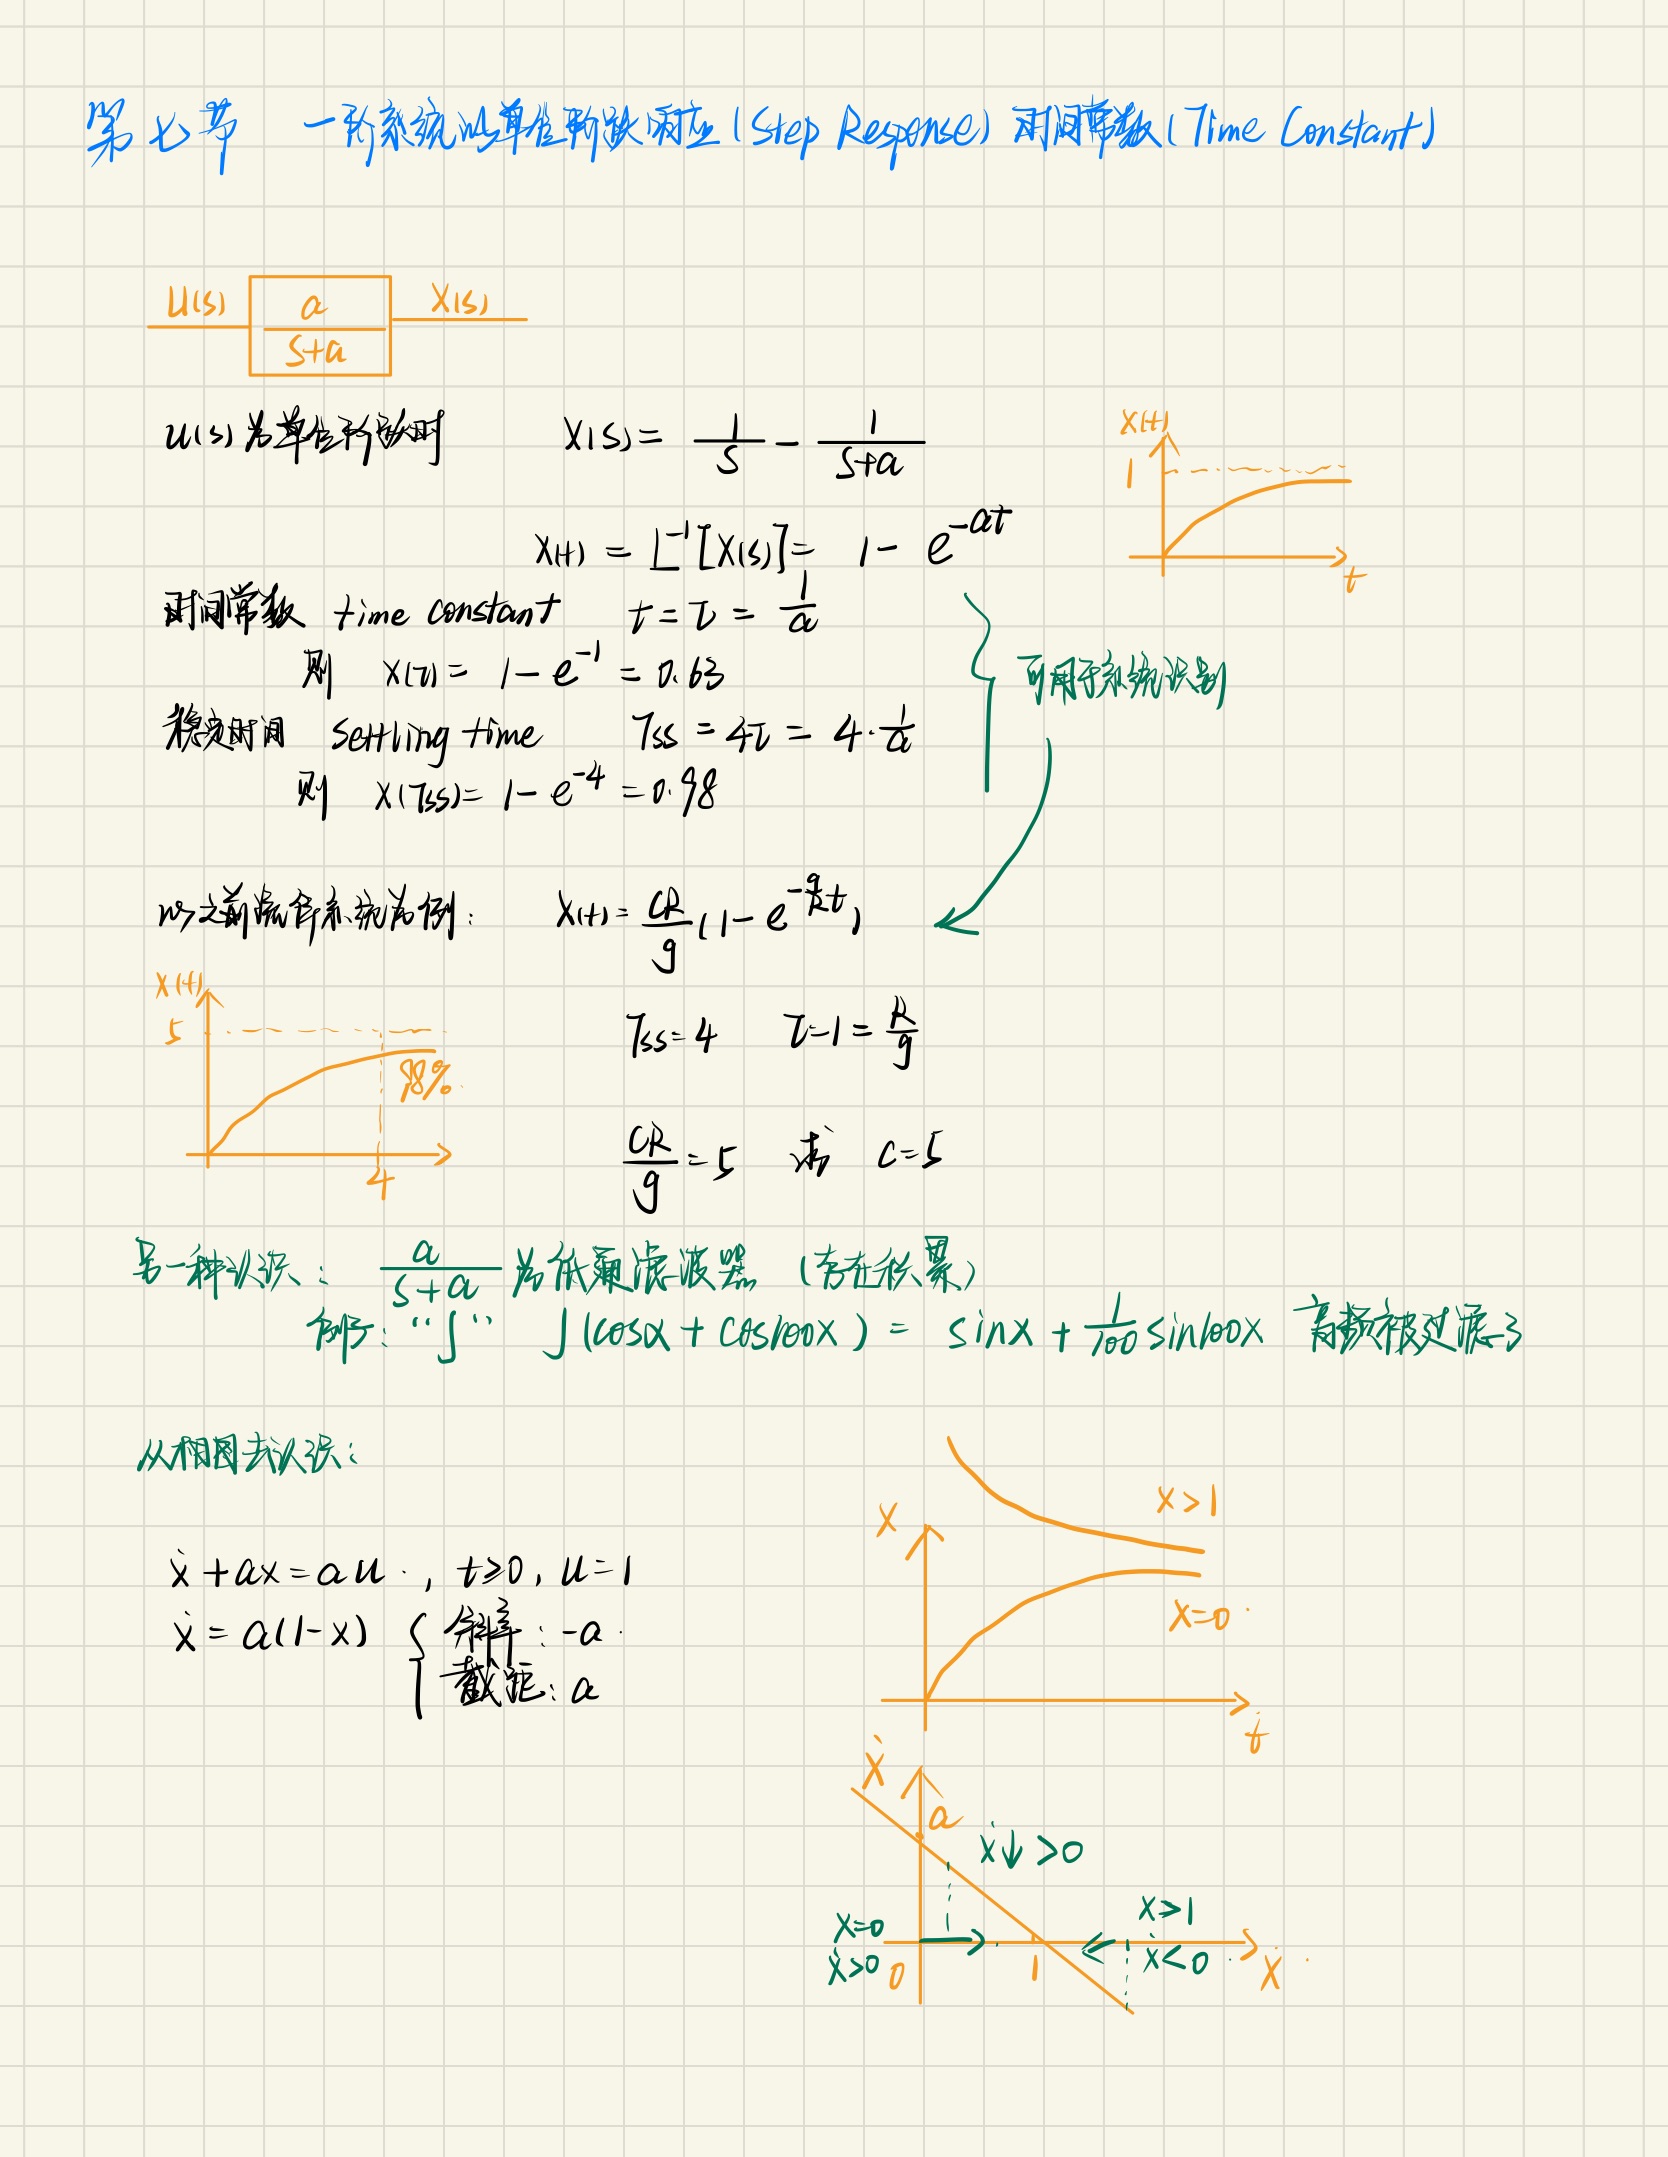 第七节 一阶系统的单位阶跃响应(Step Response) 时间常数(Time Constant)
U(s) a/(s+a) X(s)
u(s)为单位阶跃时 X(s) = 1/s - 1/(s+a)
x(t) = L⁻¹[X(s)] = 1 - e^(-at)
X(t)
1
t
时间常数 time constant t = τ = 1/a
则 x(τ) = 1 - e⁻¹ = 0.63
稳定时间 settling time Tss = 4τ = 4·1/a
则 x(Tss) = 1 - e⁻⁴ = 0.98
可用于系统识别
以之前流体系统为例: x(t) = CR/g (1 - e^(-g/R t))
X(t)
5
98%
4
Tss = 4 τ = 1 = R/g
CR/g = 5 求 C = 5
另一种认识: a/(s+a) 为低通滤波器 (存在积累)
例子: "∫" ∫(cosx + cos100x) = sinx + 1/100 sin100x 高频被过滤了
从相图去认识:
ẋ + ax = au , t≥0, u=1
ẋ = a(1-x) { 斜率: -a
截距: a
x
x>1
x=0
t
ẋ
a
ẋ↓ >0
x=0
ẋ>0
0
1
x>1
ẋ<0
x